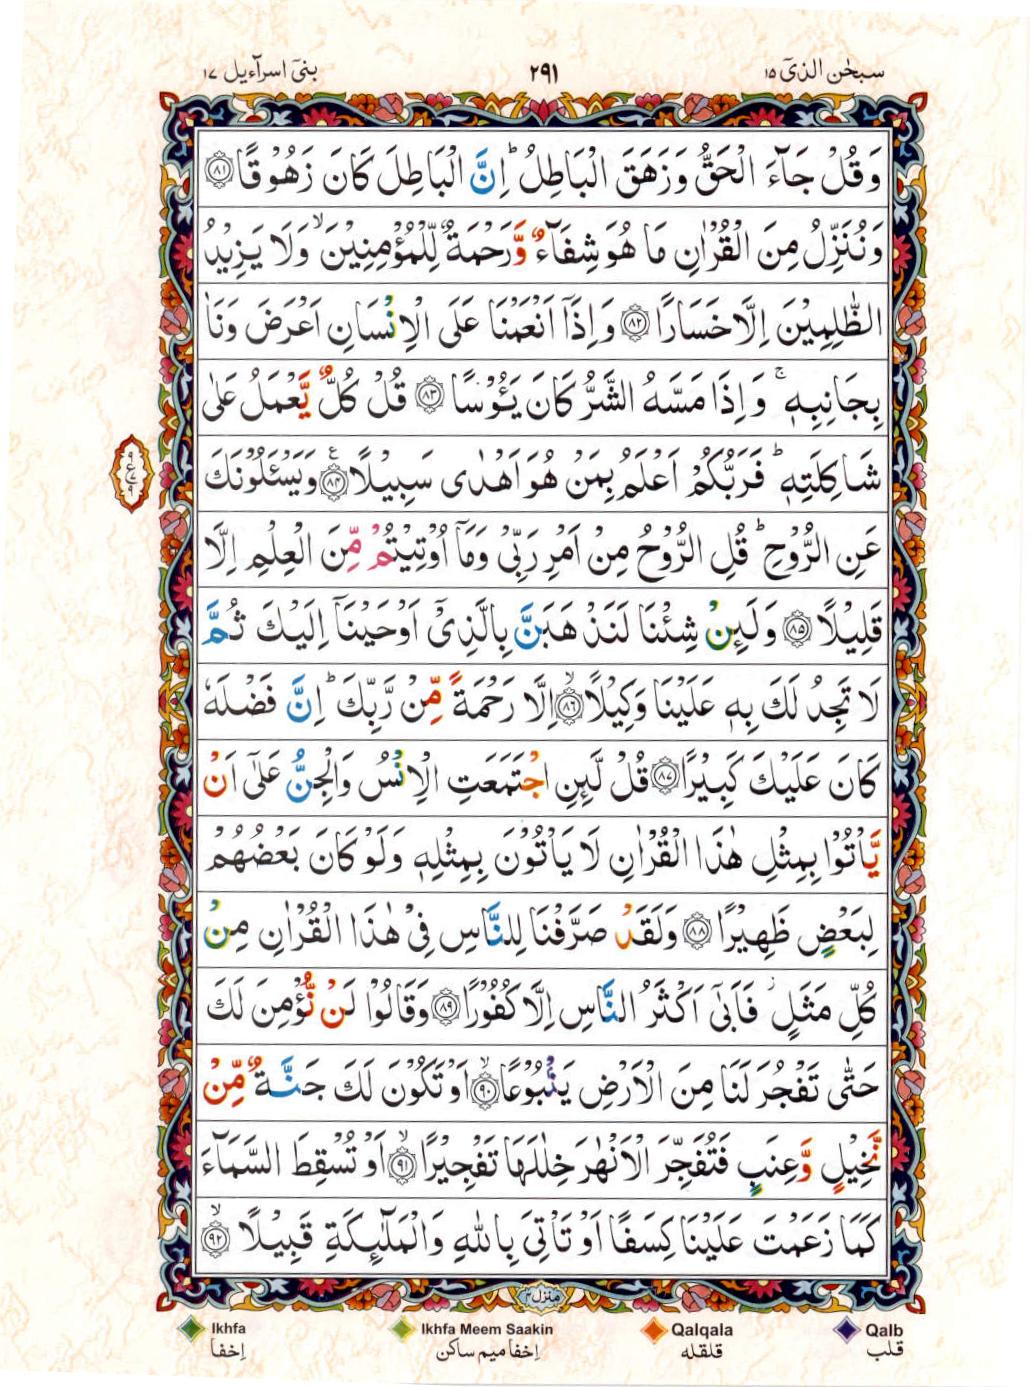 سبحٰن الذیٓ ۱۵
۲۹۱
بنیٓ اسرآءیل ۱۷
وَقُلْ جَآءَ الْحَقُّ وَزَهَقَ الْبَاطِلُ ؕ اِنَّ الْبَاطِلَ كَانَ زَهُوْقًا ﴿۸۱﴾
وَنُنَزِّلُ مِنَ الْقُرْاٰنِ مَا هُوَ شِفَآءٌ وَّرَحْمَةٌ لِّلْمُؤْمِنِيْنَ ۙ وَلَا يَزِيْدُ
الظّٰلِمِيْنَ اِلَّا خَسَارًا ﴿۸۲﴾ وَاِذَاۤ اَنْعَمْنَا عَلَى الْاِنْسَانِ اَعْرَضَ وَنَاٰ
بِجَانِبِهٖ ۚ وَاِذَا مَسَّهُ الشَّرُّ كَانَ يَـُٔوْسًا ﴿۸۳﴾ قُلْ كُلٌّ يَّعْمَلُ عَلٰى
شَاكِلَتِهٖ ؕ فَرَبُّكُمْ اَعْلَمُ بِمَنْ هُوَ اَهْدٰى سَبِيْلًا ﴿۸۴﴾ وَيَسْـَٔلُوْنَكَ
عَنِ الرُّوْحِ ؕ قُلِ الرُّوْحُ مِنْ اَمْرِ رَبِّىْ وَمَاۤ اُوْتِيْتُمْ مِّنَ الْعِلْمِ اِلَّا
قَلِيْلًا ﴿۸۵﴾ وَلَئِنْ شِئْنَا لَنَذْهَبَنَّ بِالَّذِىْۤ اَوْحَيْنَاۤ اِلَيْكَ ثُمَّ
لَا تَجِدُ لَكَ بِهٖ عَلَيْنَا وَكِيْلًا ۙ﴿۸۶﴾ اِلَّا رَحْمَةً مِّنْ رَّبِّكَ ؕ اِنَّ فَضْلَهٗ
كَانَ عَلَيْكَ كَبِيْرًا ﴿۸۷﴾ قُلْ لَّئِنِ اجْتَمَعَتِ الْاِنْسُ وَالْجِنُّ عَلٰٓى اَنْ
يَّاْتُوْا بِمِثْلِ هٰذَا الْقُرْاٰنِ لَا يَاْتُوْنَ بِمِثْلِهٖ وَلَوْ كَانَ بَعْضُهُمْ
لِبَعْضٍ ظَهِيْرًا ﴿۸۸﴾ وَلَقَدْ صَرَّفْنَا لِلنَّاسِ فِىْ هٰذَا الْقُرْاٰنِ مِنْ
كُلِّ مَثَلٍ ؗ فَاَبٰٓى اَكْثَرُ النَّاسِ اِلَّا كُفُوْرًا ﴿۸۹﴾ وَقَالُوْا لَنْ نُّؤْمِنَ لَكَ
حَتّٰى تَفْجُرَ لَنَا مِنَ الْاَرْضِ يَنْۢبُوْعًا ۙ﴿۹۰﴾ اَوْ تَكُوْنَ لَكَ جَنَّةٌ مِّنْ
نَّخِيْلٍ وَّعِنَبٍ فَتُفَجِّرَ الْاَنْهٰرَ خِلٰلَهَا تَفْجِيْرًا ۙ﴿۹۱﴾ اَوْ تُسْقِطَ السَّمَآءَ
كَمَا زَعَمْتَ عَلَيْنَا كِسَفًا اَوْ تَاْتِىَ بِاللّٰهِ وَالْمَلٰٓئِكَةِ قَبِيْلًا ۙ﴿۹۲﴾
منزل ۴
Ikhfa
Ikhfa Meem Saakin
Qalqala
Qalb
اِخفا
اِخفا میم ساکن
قلقله
قلب